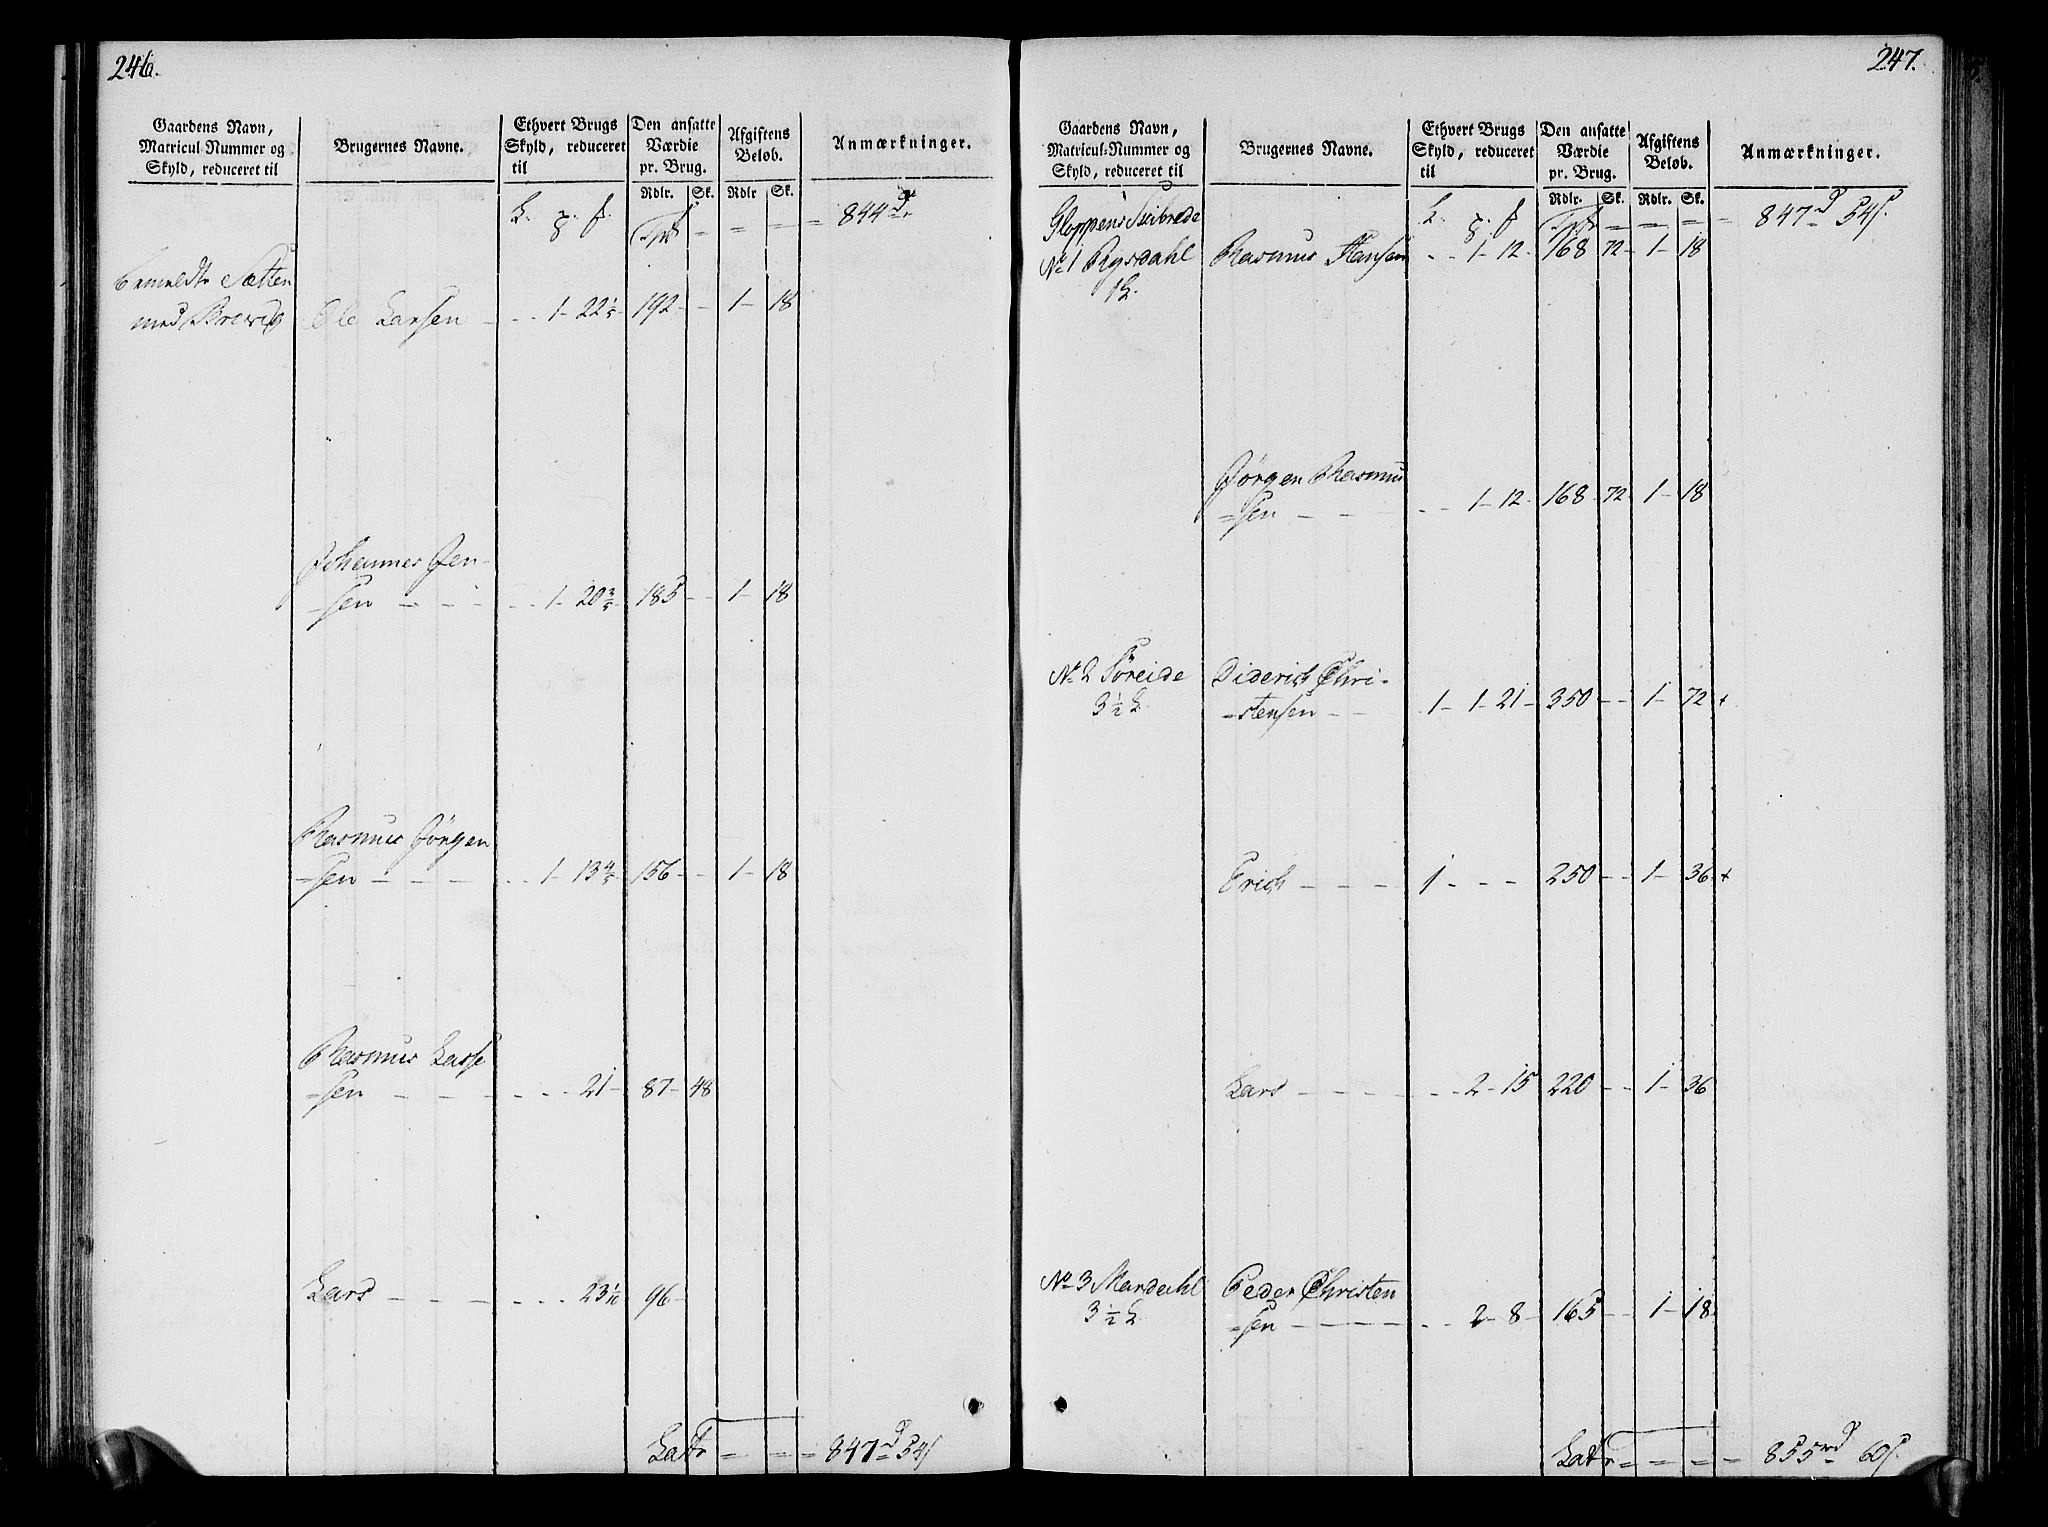 246.
Gaardens Navn,
Matricul-Nummer og
Skyld, reduceret til
Brugernes Navne.
Ethvert Brugs
Skyld, reduceret
til
Den ansatte
Værdie
pr. Brug.
Rdlr. Sk.
Afgiftens
Beløb.
Rdlr Sk.
Anmærkninger.
844
bemeldte Sætten
med Brewig Ole Larsen - - - 1 - 22 1/5 192 - - 1 - 18
Johannes Jen-
-sen - - - - - 1 - 20 2/5 185 - - 1 - 18
Rasmus Jörgen
-sen - - - - - 1 - 13 4/5 156 - - 1 - 18
Rasmus Lasse
-sen - - - - - - 21 - 87 - 48
Lars - - - - - - 23 1/10 96 -
Latr = = = 847 54
247.
Gaardens Navn,
Matricul-Nummer og
Skyld, reduceret til
Brugernes Navne.
Ethvert Brugs
Skyld, reduceret
til
Den ansatte
Værdie
pr. Brug.
Rdlr. Sk.
Afgiftens
Beløb.
Rdlr. Sk.
Anmærkninger.
Gloppens 847 54
No 1 Rysdahl Rasmus Hansen - - 1 - 12 - 168 72 - 1 - 18
Jörgen Rasmus
=sen - - - - - 1 - 12 - 168 - 72 - 1 - 18
No 2 Söreide Diderich Chri-
3 1/2 L -stensen - - 1 - 1 - 21 - 350 - - 1 - 72 +
Erich - - - 1 - - - 250 - - 1 - 36 +
Lars - - - - - - 2 - 15 220 - - 1 - 36
No 3 Mardahl Peder Christen
3 1/2 L -sen - - - - - 2 - 8 - 165 - - 1 - 18
Latr = = = 855 60